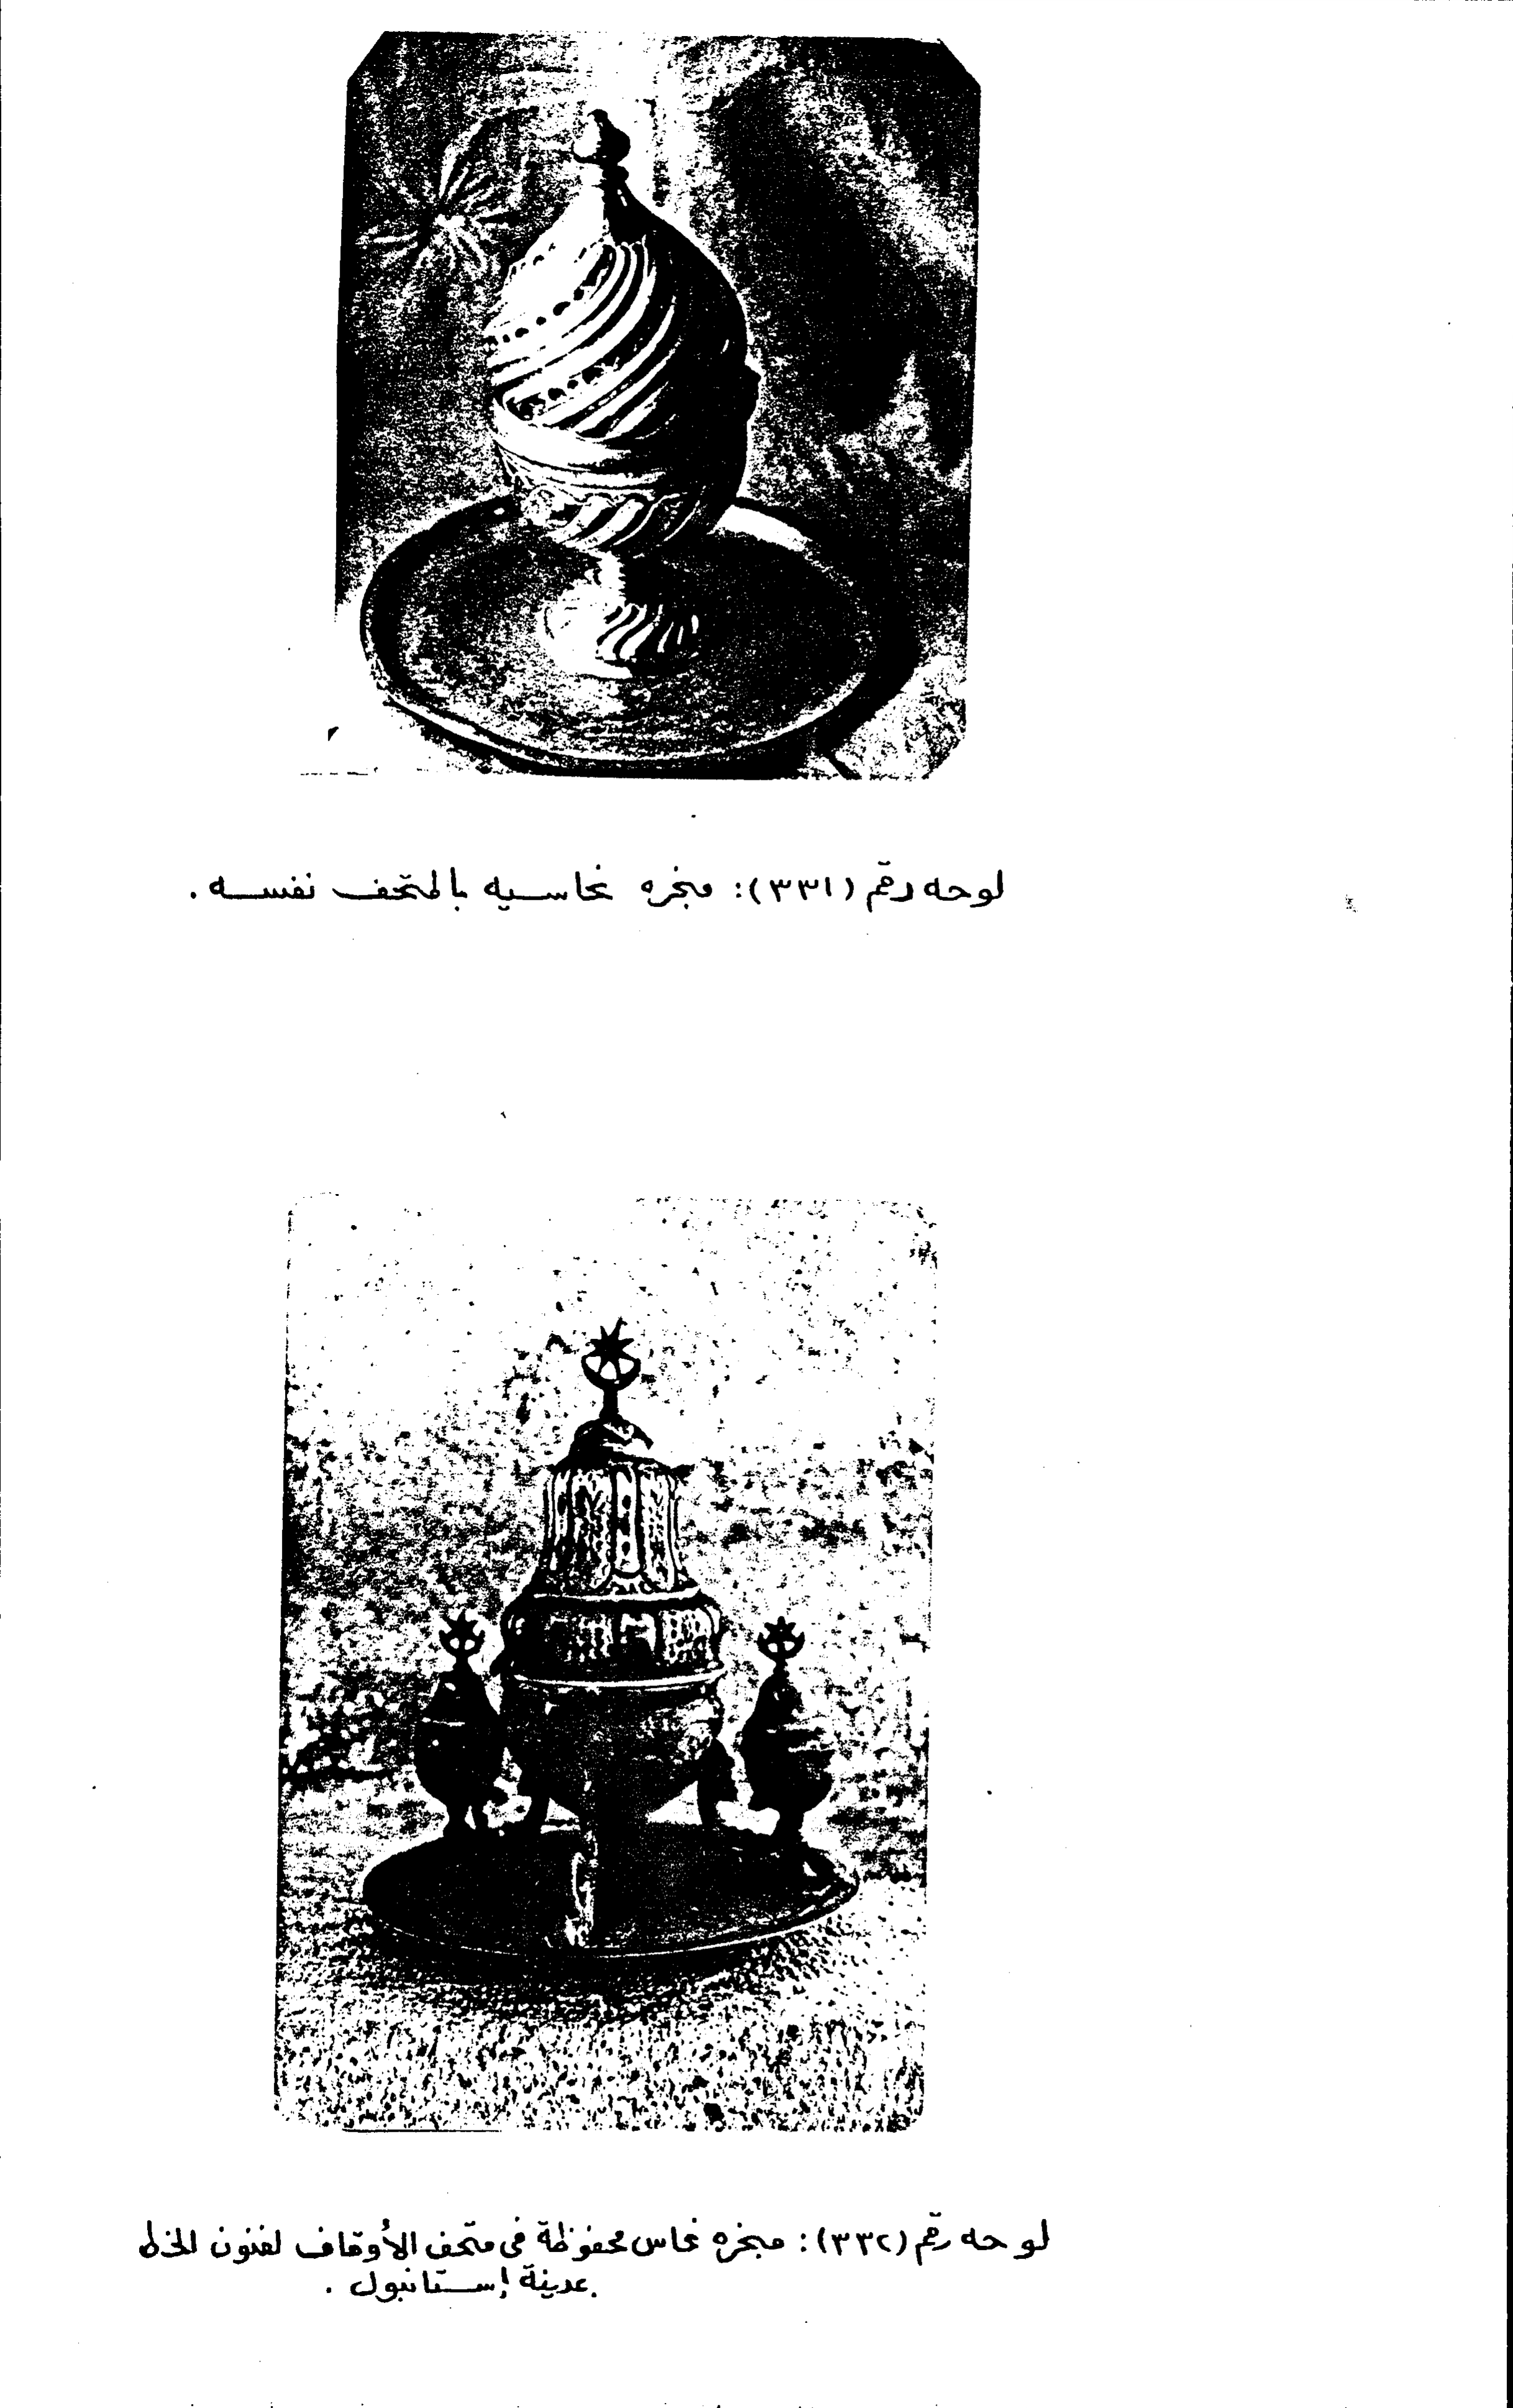 لوحه رقم (٣٣١): مبخره نحاسيه بالمتحف نفسه .
لوحه رقم (٣٣٢): مبخره نحاس محفوظة فى متحف الأوقاف لفنون الخط
بمدينة إستانبول .